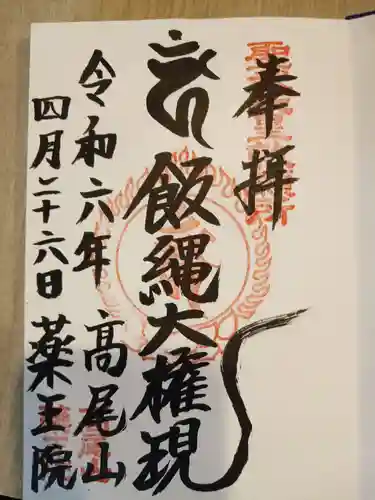 奉拝
飯縄大権現
令和六年 高尾山
四月二十六日 薬王院